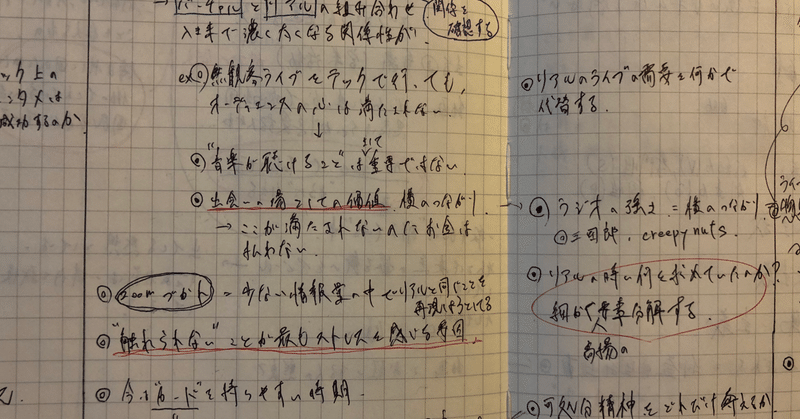 → バーチャル と リアル の組み合わせ
関係を
確認する
ex) ◎ 無観客ライブをテックで行っても、
オーディエンスの心は満たされない
↓
◎ "音楽が聴けること"は重要ではない
さして
◎ 出会いの場としての価値、横のつながり
→ ここが満たされないのにお金は
払わない.
◎ zoom = 少ない情報量の中でリアルと同じことを
再現しようとしてる
◎ "触れられない"ことが最もストレスを感じる要因.
◎ 今は"ガード"を持ちやすい時期
◎ リアルのライブの需要を何かで
代替する.
→ ◎ ラジオの強さ = 横のつながり
◎ 三四郎, creepy nuts.
◎ リアルの時に何を求めていたのか?
細かく要素分解する.
高揚の
◎ 可処分精神をどれだけ奪えるか